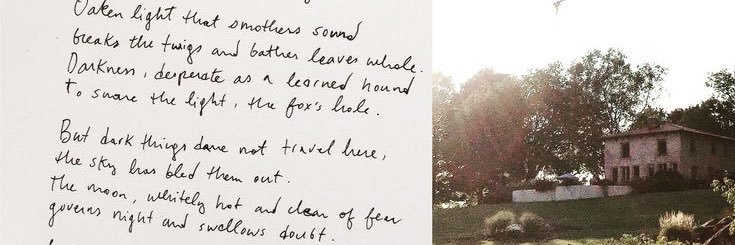 Oaken light that smothers sound
breaks the twigs and bathes leaves whole.
Darkness, desperate as a learned hound
to snare the light, the fox's hole.
But dark things dare not travel here,
the sky has bled them out.
The moon, whitely hot and clean of fear
governs night and swallows doubt.